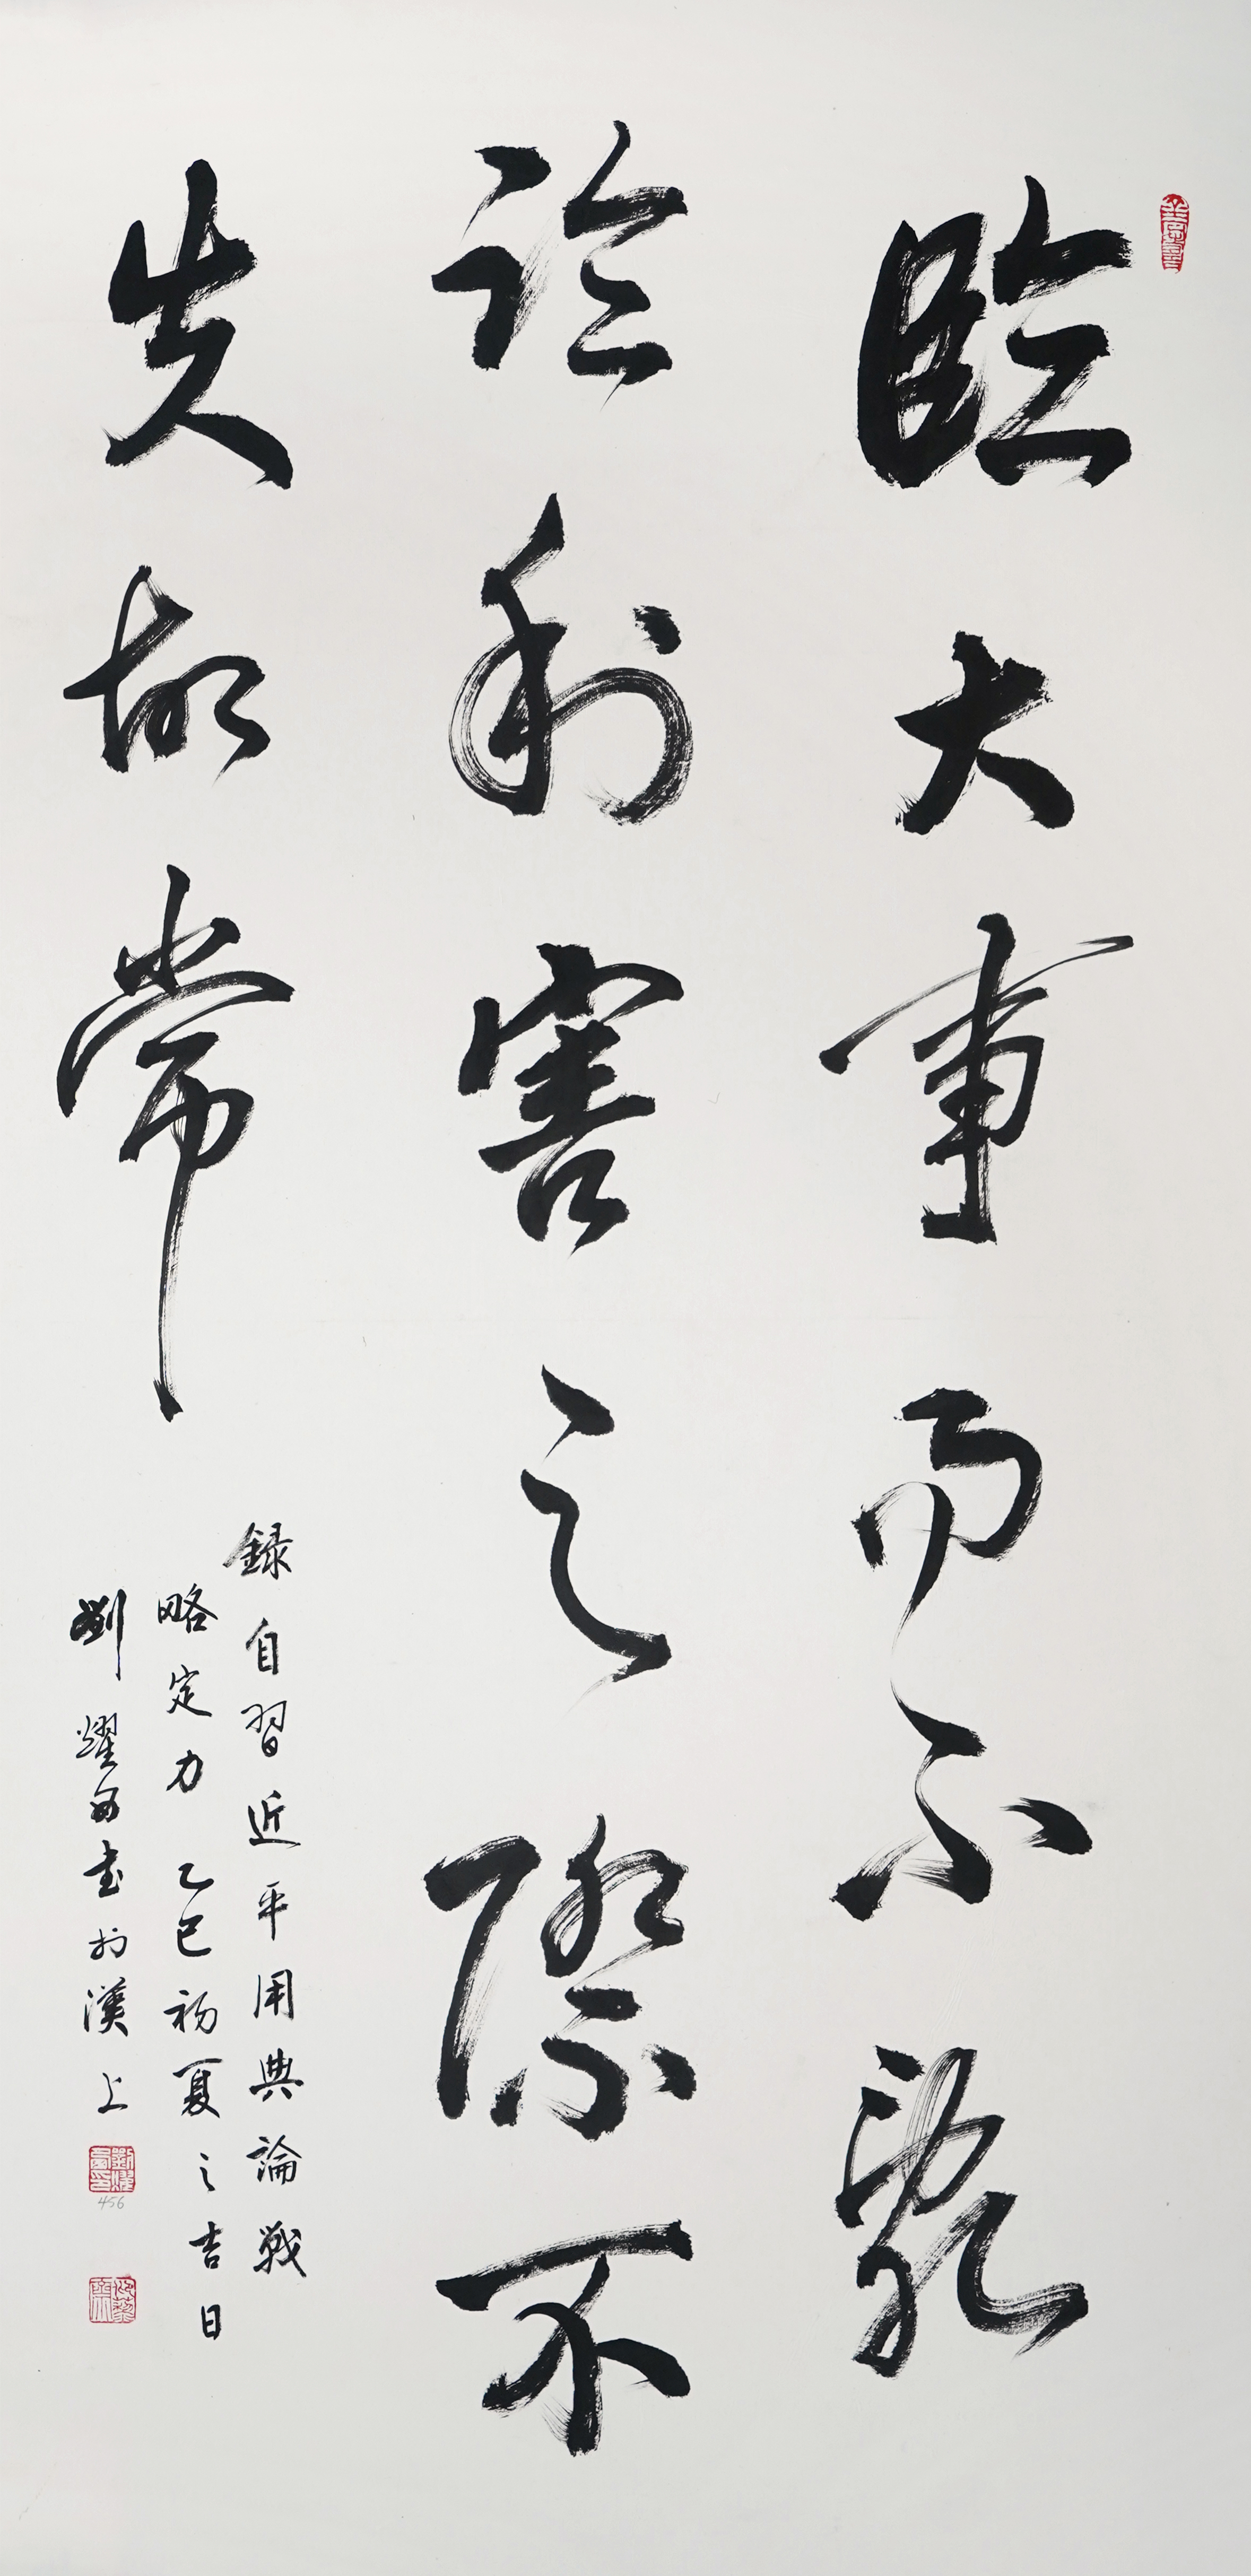 臨大事而不亂
臨利害之際不
失故常
録自習近平用典論戰
略定力 乙巳初夏之吉日
劉耀 书於漢上
456